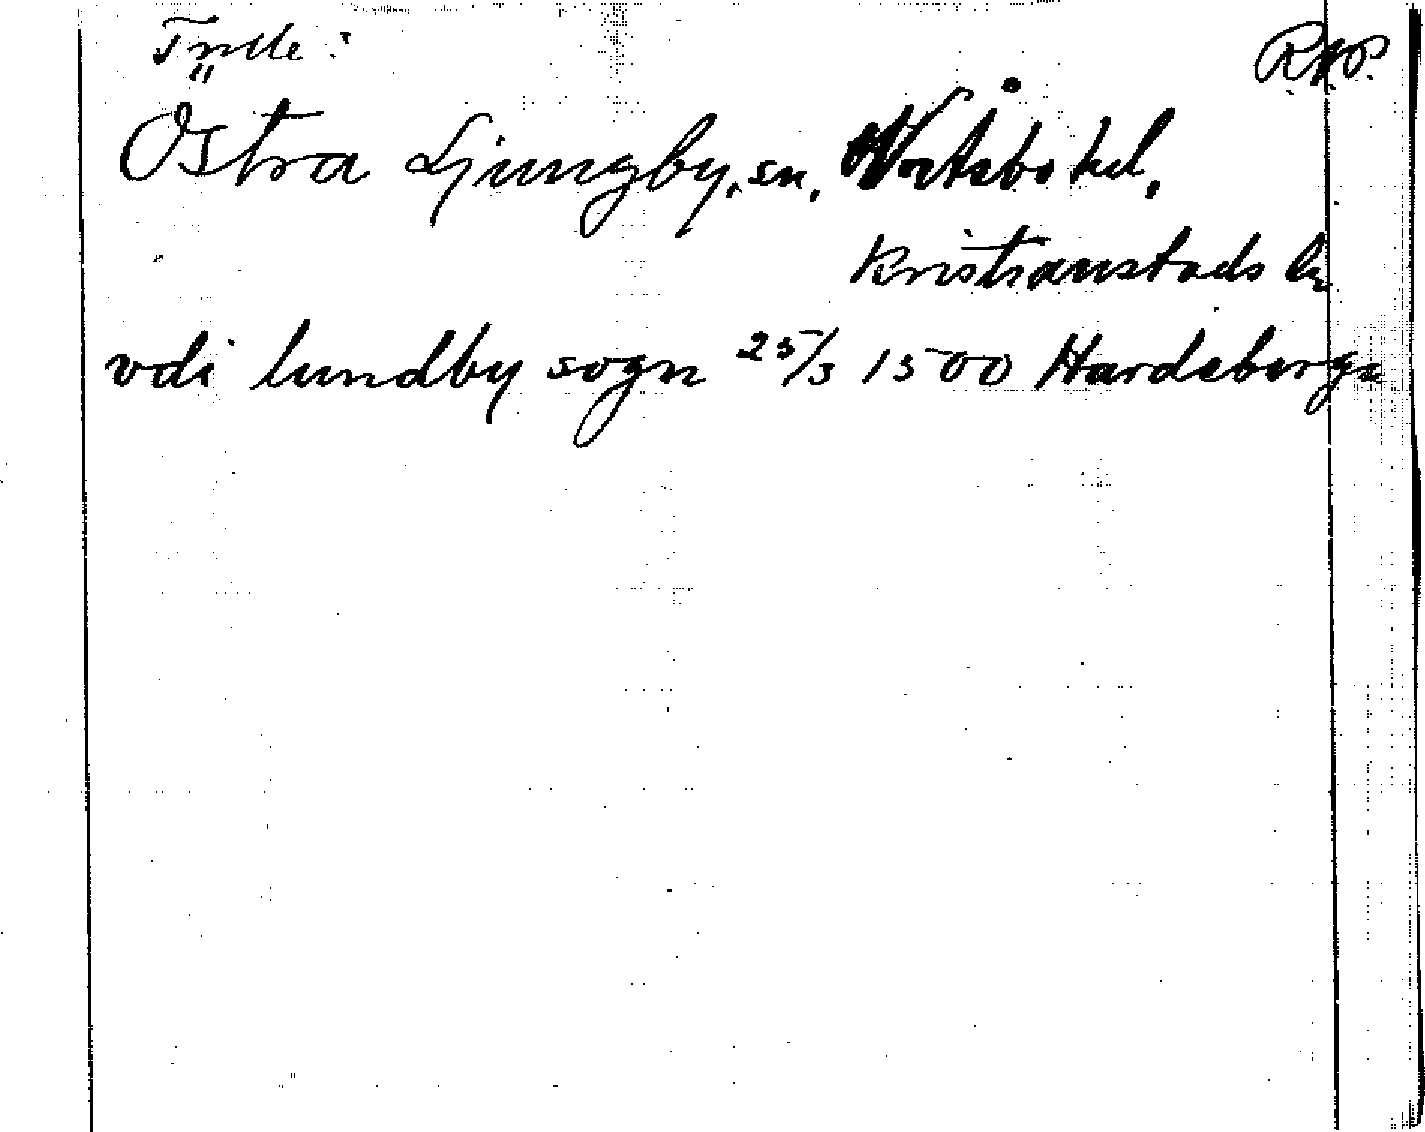 RAP.
Östra Ljungby, sn,
Kristianstads ln
vdi lundby sogn 25/3 1500 Hardeberga